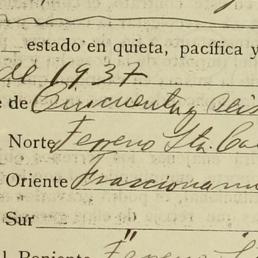 estado en quieta, pacífica y
de 1937
de Cincuenta y seis
Norte Terreno Sta. Ca
Oriente Fraccionam
Sur
Poniente Terreno